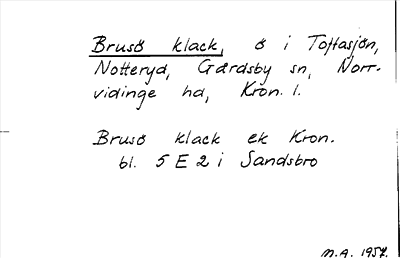 Brusö klack, ö i Toftasjön,
Notteryd, Gårdsby sn, Norr-
vidinge hd, Kron. l.
Brusö klack ek Kron.
bl. 5 E 2 i Sandsbro
M.A. 1957.